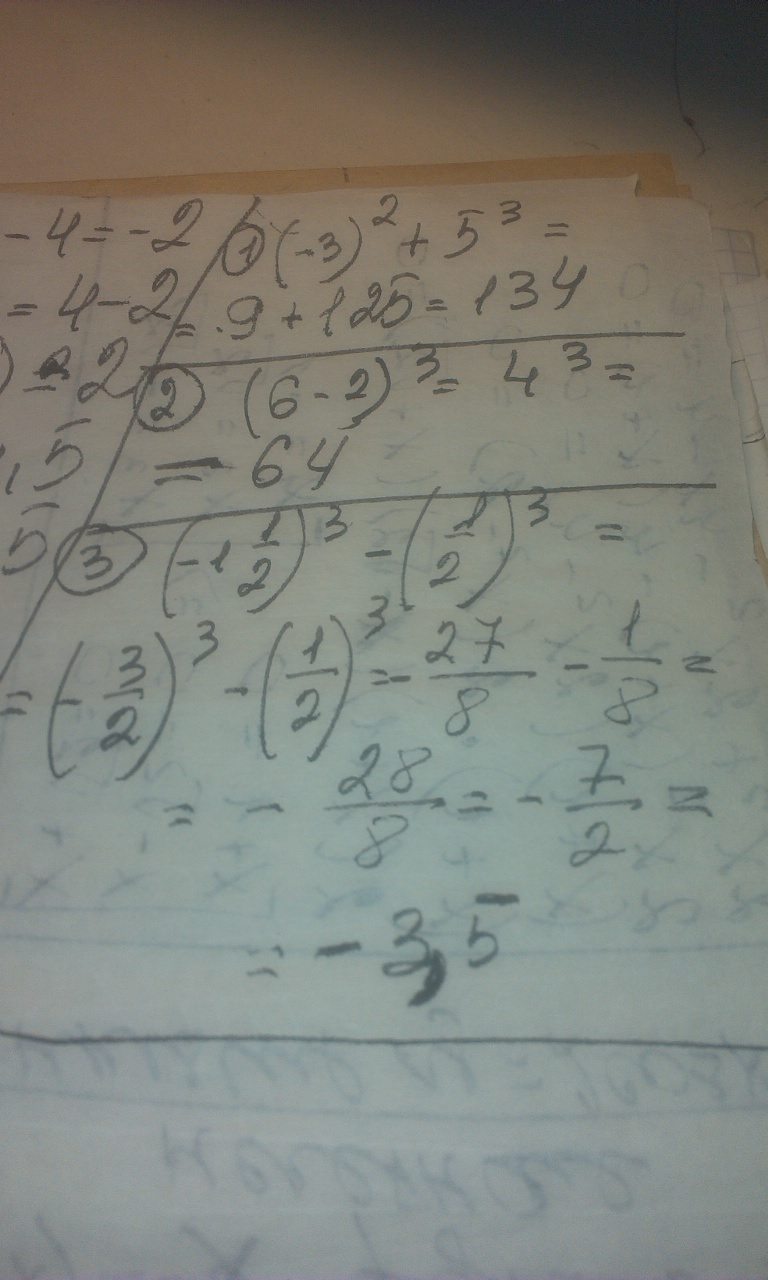 - 4 = -2
= 4 - 2
) = 2
,5
5
① (-3)² + 5³ =
= 9 + 125 = 134
② (6 - 2)³ = 4³ =
= 64
③ (-1 1/2)³ - (1/2)³ =
= (- 3/2)³ - (1/2)³ = - 27/8 - 1/8 =
= - 28/8 = - 7/2 =
= - 3,5